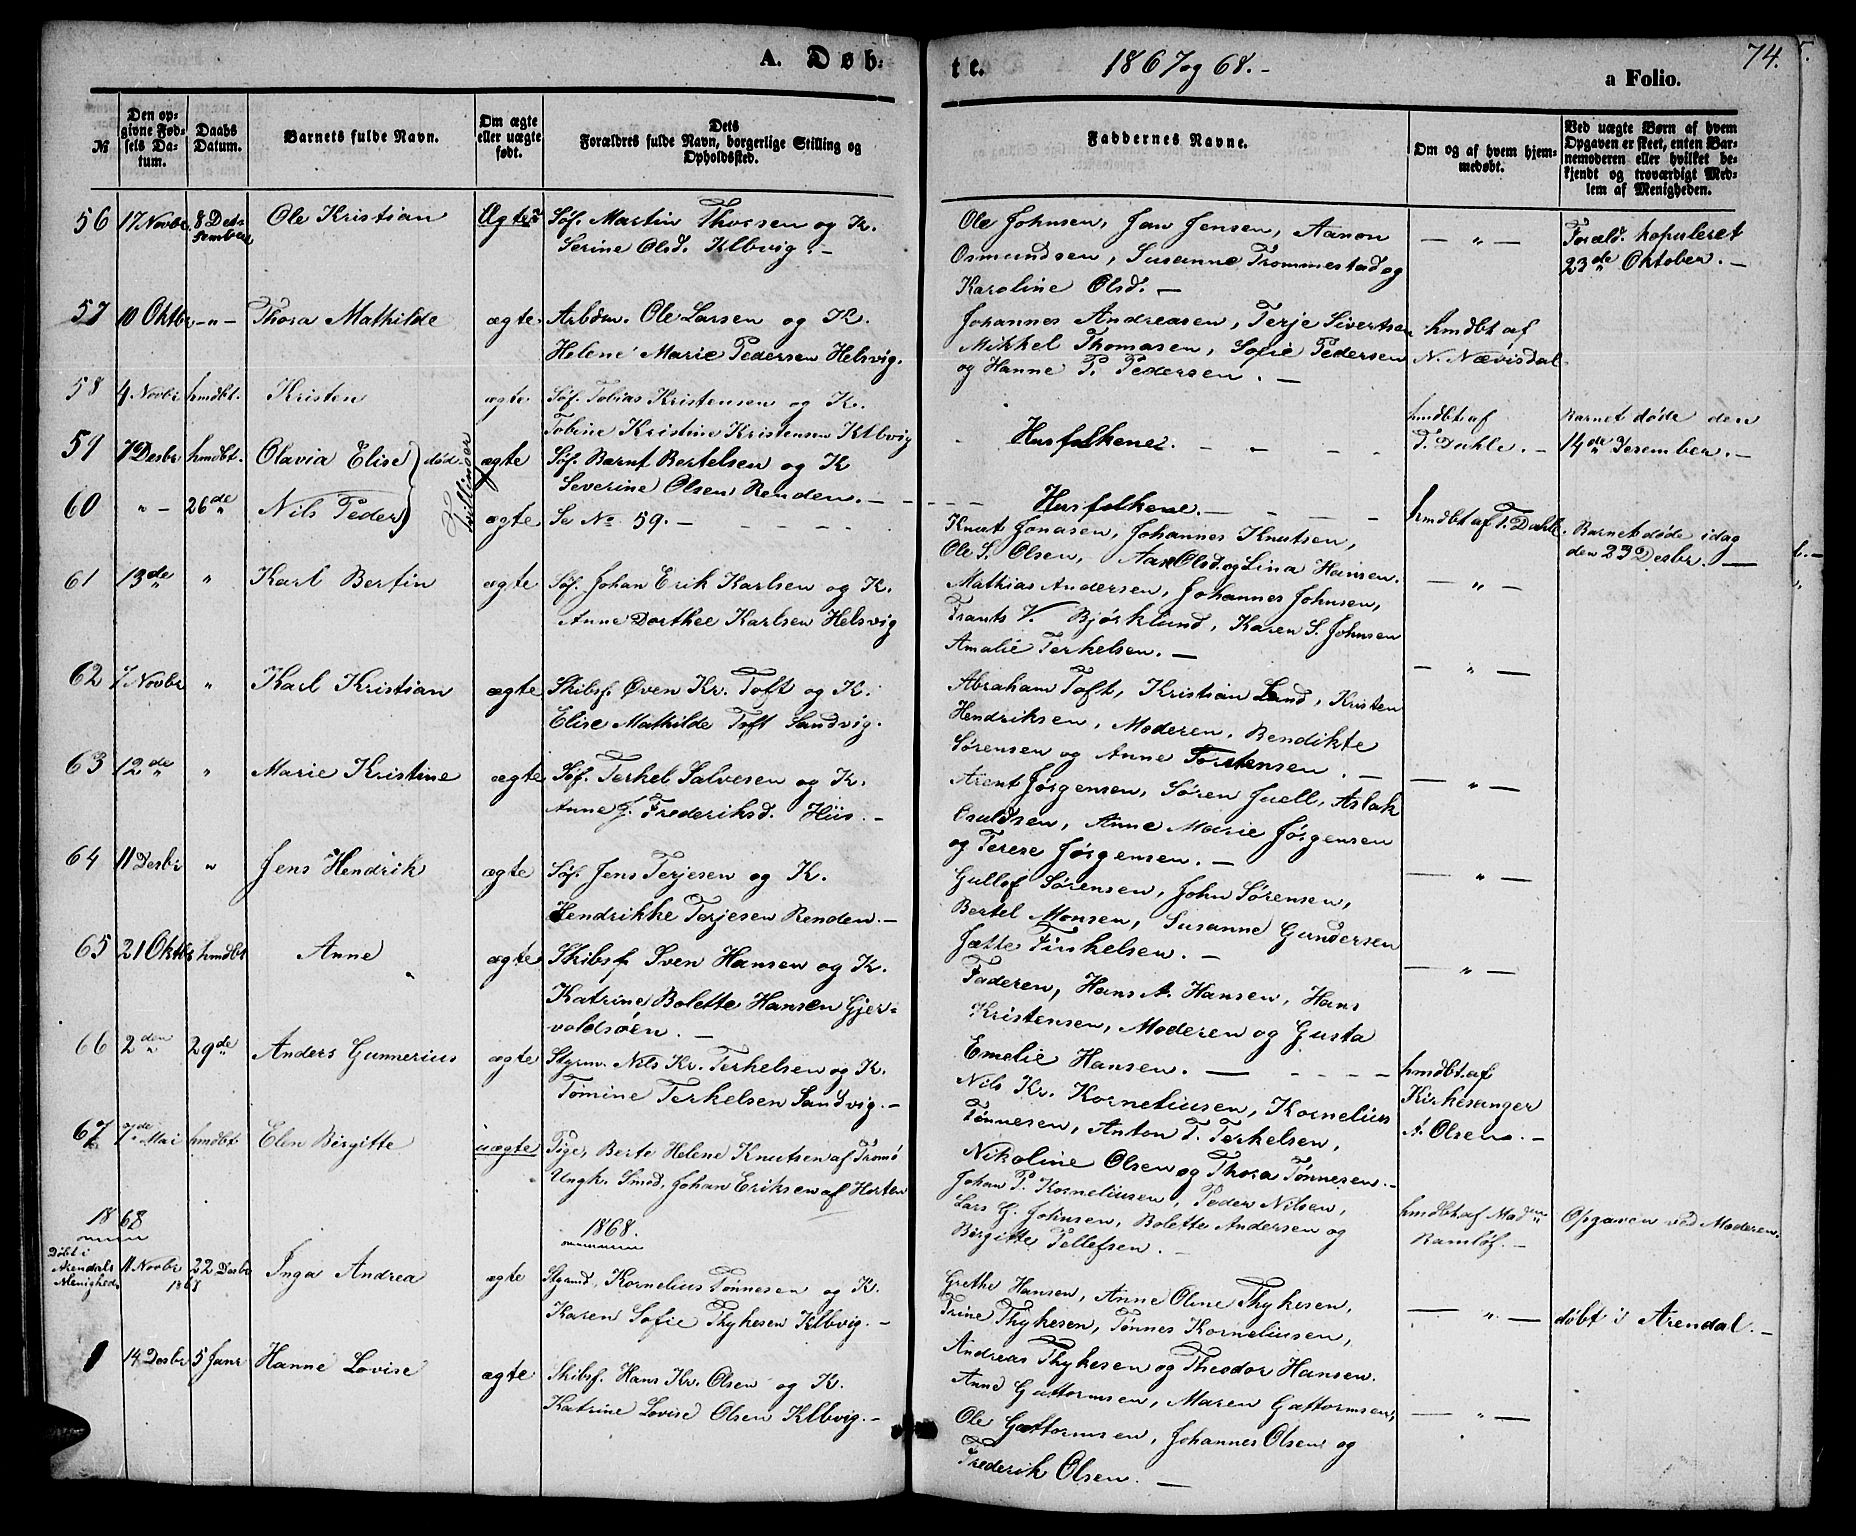 A. Døb-
te.
1867 og 68.-
74.
a Folio.
№
Den op-
givne Fød-
sels Da-
tum.
Daabs
Datum.
Barnets fulde Navn.
Om ægte
eller uægte
født.
Dets
Forældres fulde Navn, borgerlige Stilling og
Opholdssted.
Faddernes Navne.
Om og af hvem hjem-
medøbt.
Ved uægte Børn af hvem
Opgaven er skeet, enten Bar-
nemoderen eller hvilket be-
kjendt og troværdigt Med-
lem af Menigheden.
56 17 Novbr. 8 Det-
sember Ole Kristian Ægte Søf. Martin Thorsen og K.
Serine Olsd. Klbvig.-
Ole Johnsen, Jan Jensen, Aanon
Osmundsen, Susanne Trommestad og
Karoline Olsd. —
— „ —
Foreld. kopuleret
23de Oktober.-
57 10 Oktbr -„- Thora Mathilde ægte. Arbdm. Ole Larsen og K.
Helene Marie Pedersen Helsvig.
Johannes Andreasen, Terje Sivertsen
Mikkel Thomasen, Sofie Pedersen
og Hanne P. Pedersen. —
hmdbt af
N. Nævisdal
58 4 Novbr hmdbt. Kristen ægte Søf. Tobias Kristensen og K.
Tobine Kristine Kristensen Klbvig
Husfolkene.
hmdbt af
T. Dahle. -
Barnet døde den
14de Desember.-
59 7 Desbr hmdbt. Olavia Elise død. ægte Søf. Barnt Bertelsen og K
Severine Olsen Renden.-
Tvillinger
60 „ - 26de Nils Peder ægte Se No. 59.-
Husfolkene.-
hmdbt af T. Dahle.
Barnet døde idag
den 23 Desbr.-
61 13de „ Karl Bertin ægte Søf. Johan Erik Karlsen og K.
Anne Dorthee Karlsen Helsvig
Knut Jonasen, Johannes Knutsen,
Ole S. Olsen, Aase Olsd. og Lina Hansen.
— „ —
62 7 Novbr „ Karl Kristian ægte Skibsf. Øven Kr. Toft og K.
Elise Mathilde Toft Sandvig.
Mathias Andersen, Johannes Johnsen,
Frants V. Bjørklund, Karen S. Johnsen
Amalie Terkelsen. —
— „ —
63 12de „ Marie Kristine ægte Søf. Terkel Salvesen og K.
Anne J. Frederiksd. Hiis.-
Abraham Toft, Kristian Lund, Kristen
Hendriksen, Moderen, Bendikte
Sørensen og Anne Torstensen. —
— „ —
64 11 Desbr „ Jens Hendrik ægte Søf. Jens Terjesen og K.
Hendrikke Terjesen Renden.-
Arent Jørgensen, Søren Juell, Aslak
Osuldsen, Anne Marie Jørgensen
og Terese Jørgensen. —
— „ —
65 21 Oktbr hmdbt Anne ægte Skibsf. Sven Hansen og K.
Katrine Bolette Hansen Gjer-
voldsøen. —
Gullof Sørensen, John Sørensen,
Bertel Monsen, Susanne Gundersen
Jætte Tirkelsen. —
— „ —
66 2den 29de Anders Gunnerius ægte Styrm. Nils Kr. Terkelsen og K.
Tomine Terkelsen Sandvig.-
Faderen, Hans A. Hansen, Hans
Kristensen, Moderen og Gusta
Emelie Hansen. —
hmdbt. af
Kirkesanger
A. Olsen. -
67 7de Mai hmdbt. Elen Birgitte uægte Pige, Berte Helene Knutsen af Tromø
Ungk. Smed, Johan Eriksen af Horten
Nils Kr. Korneliusen, Kornelius
Tønnesen, Anton T. Terkelsen,
Nikoline Olsen og Thora Tønnesen.-
hmdbt. af Madm
Ramløf. -
Opgaven ved Moderen.
1868 1868.
Døbt i
Arendals
Menighed 11 Novbr 22 Desbr
1867 Inga Andrea ægte Styrmd. Kornelius Tønnesen og K.
Karen Sofie Thykesen Klbvig.-
Johan P. Korneliusen, Peder Nilsen,
Lars G. Johnsen, Bolette Andersen og
Birgitte Pellefsen. —
— „ —
døbt i Arendal.-
1 14 Desbr 5 Janr Hanne Lovise ægte Skibsf. Hans Kr. Olsen og K.
Katrine Lovise Olsen Klbvig.-
Grethe Hansen, Anne Oline Thykesen,
Trine Thykesen, Tønnes Korneliusen,
Andreas Thykesen og Theodor Hansen.
Anne Guttormsen, Maren Gattormsen,
Ole Gattormsen, Johannes Olsen og
Frederik Olsen. —
— „ —